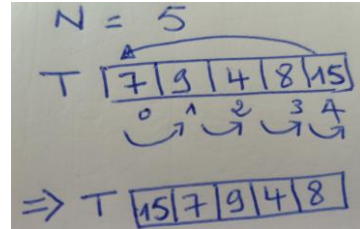 N = 5
T 7 9 4 8 15
0 1 2 3 4
=> T 15 7 9 4 8